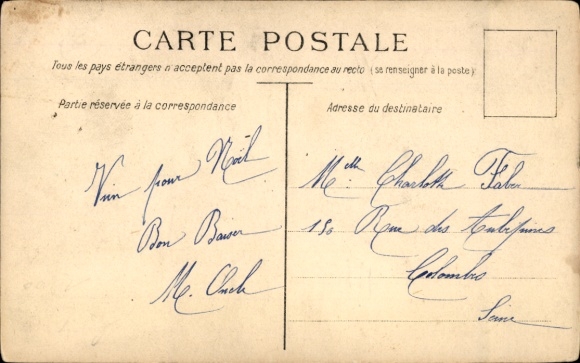 CARTE POSTALE
Tous les pays étrangers n'acceptent pas la correspondance au recto (se renseigner à la poste)
Partie réservée à la correspondance
Adresse du destinataire
pour Noël
Bon Baiser
M.
Mlle Charlotte Faber
130 Rue des Aubépines
Colombes
Seine